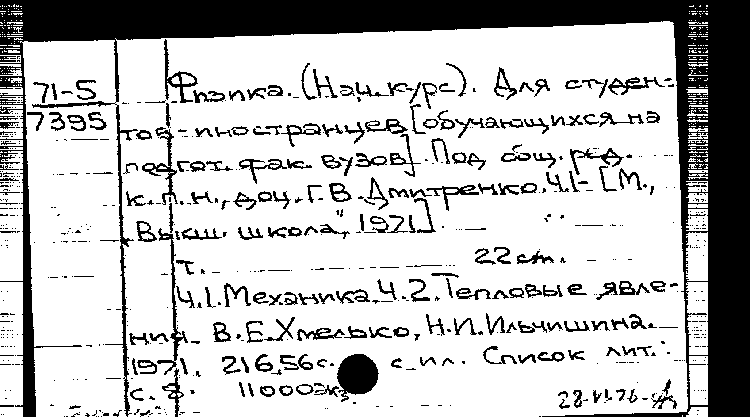 71-5
7395
Физика. (Нач. курс). Для студен-
тов-иностранцев [обучающихся на
подгот. фак. вузов]. Под общ. ред.
к.п.н., доц. Г.В. Дмитренко. Ч.1- [М.,
"Высш. школа", 1971].
т. 22 см.
Ч.1. Механика. Ч.2. Тепловые явле-
ния. В.Е. Хмелько, Н.И. Ильчишина.
1971. 216,56 с. с ил. Список лит.:
с. 8. 11000 экз